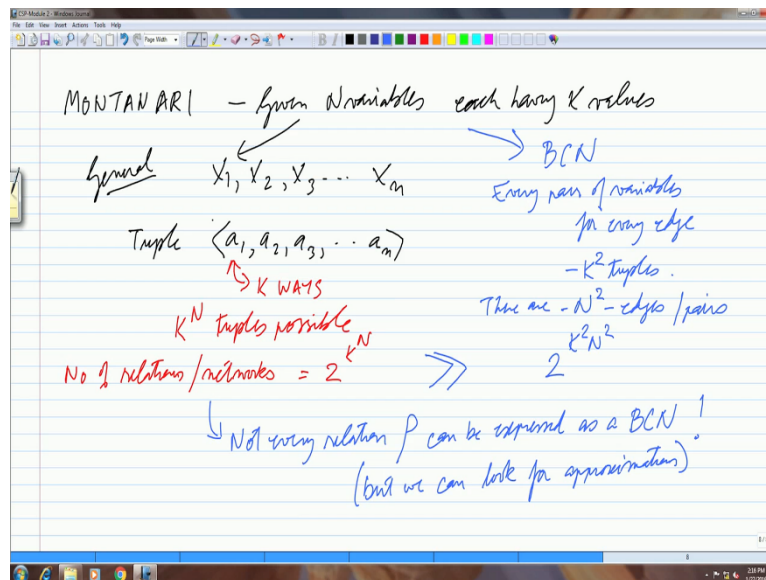 CSP-Module 2 - Windows Journal
File Edit View Insert Actions Tools Help
Page Width
MONTANARI - Given N variables each having K values
General X1, X2, X3 --- Xn
Tuple ⟨a1, a2, a3, .. an⟩
K WAYS
K^N tuples possible
No of relations/networks = 2^K^N >> 2^K^2N^2
BCN
Every pair of variables
for every edge
- K^2 tuples.
There are - N^2 - edges / pairs
Not every relation ρ can be expressed as a BCN!
(but we can look for approximations)
8
2:18 PM